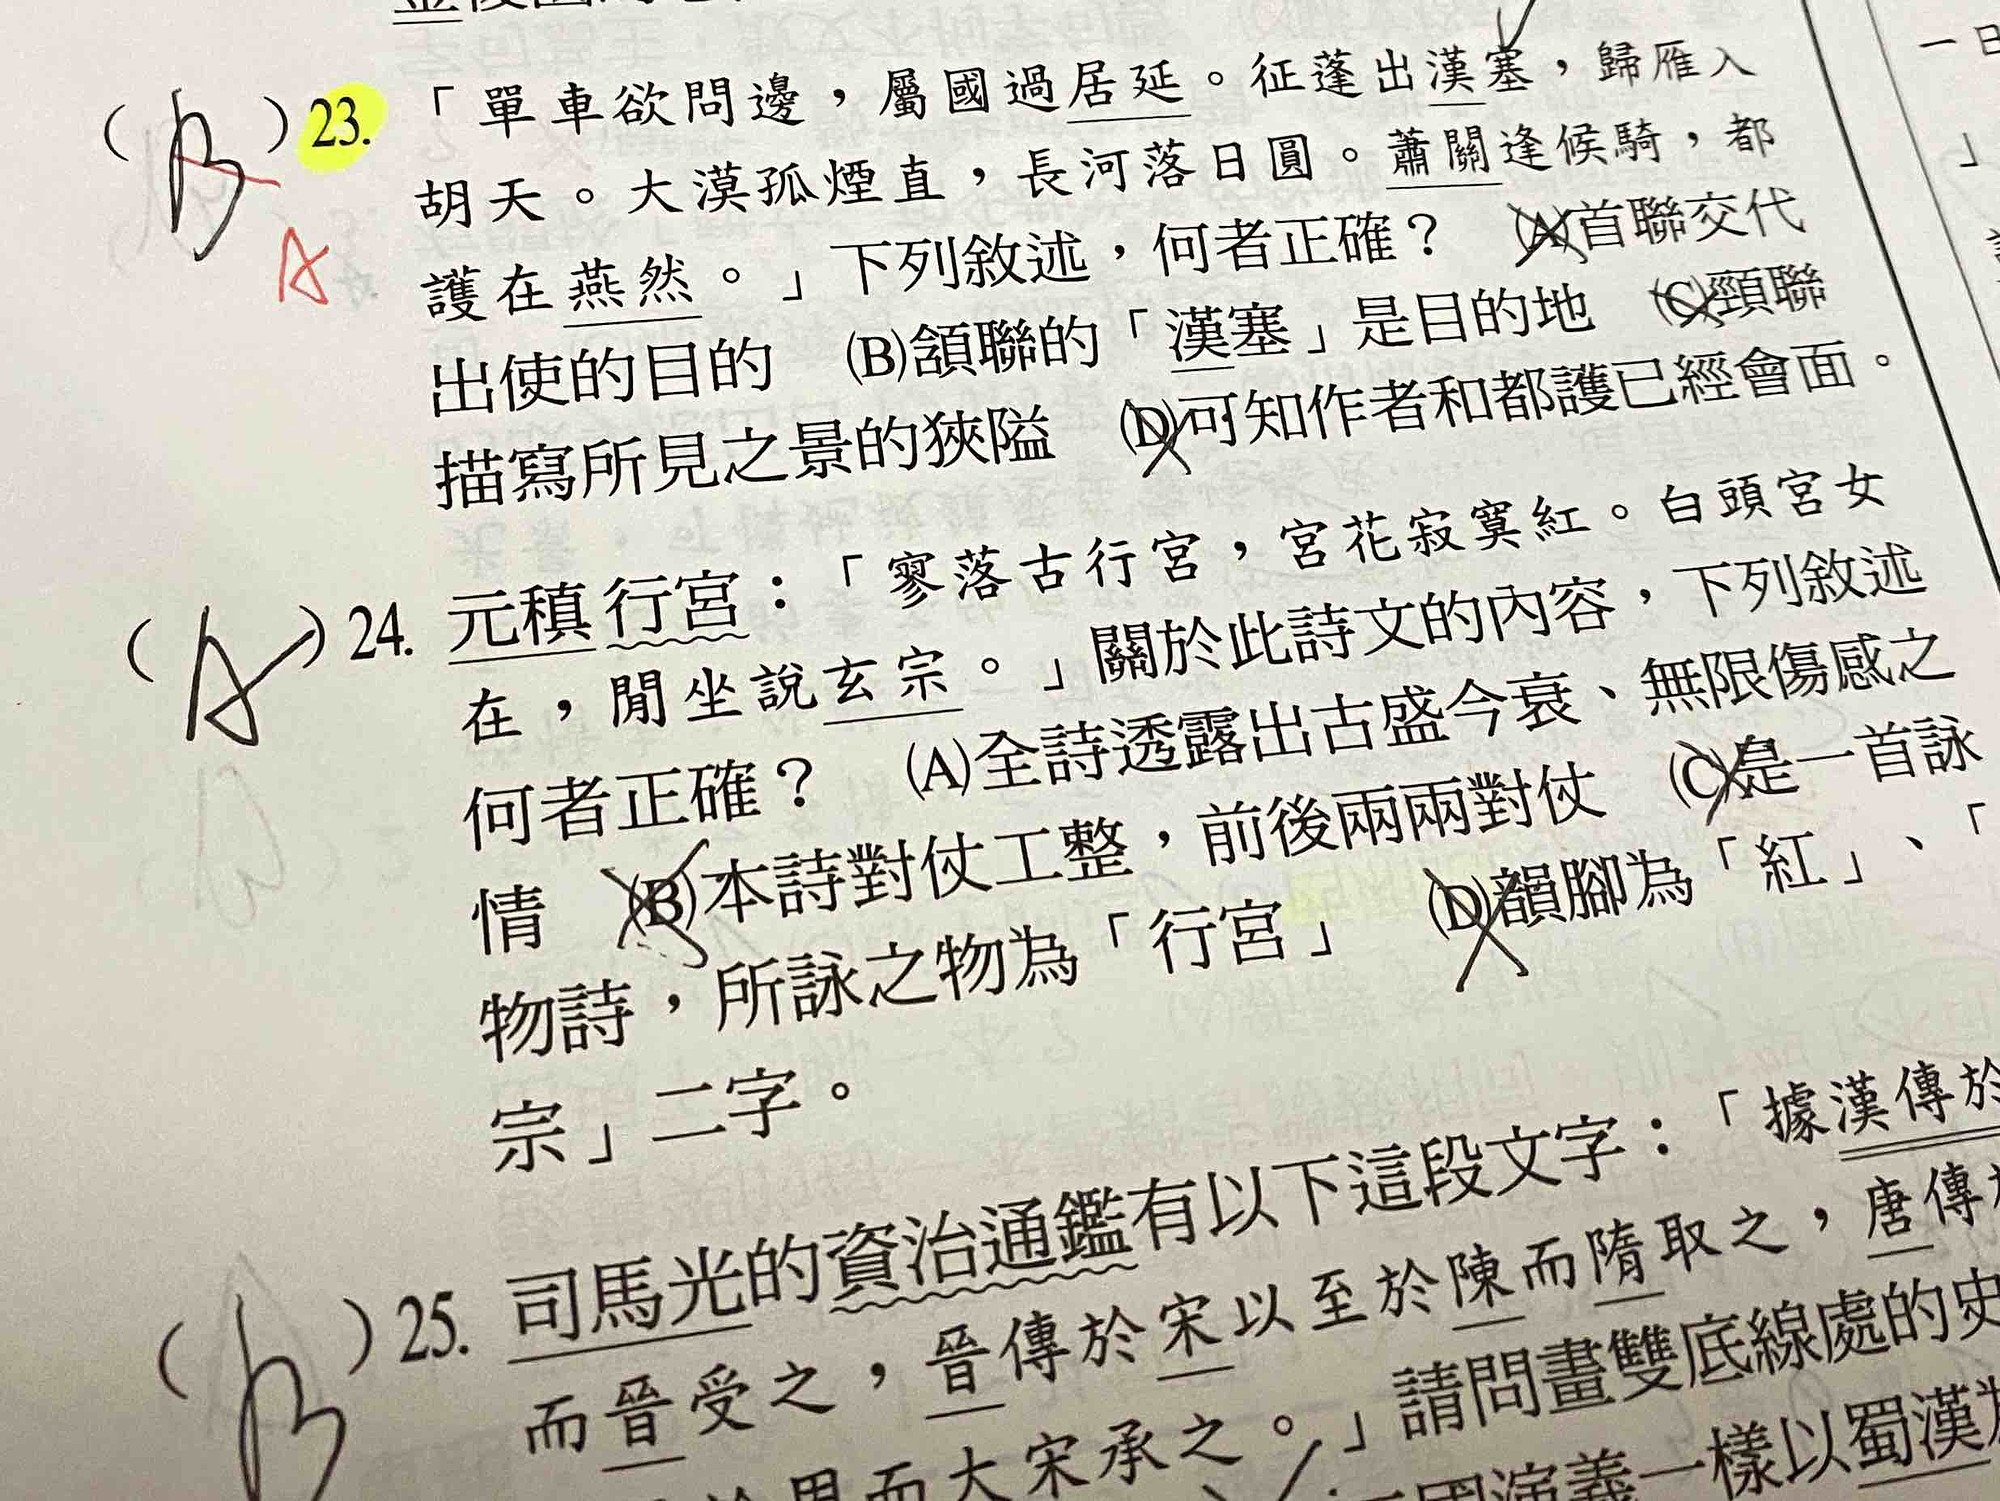 (B) 23. 「單車欲問邊，屬國過居延。征蓬出漢塞，歸雁入
A
胡天。大漠孤煙直，長河落日圓。蕭關逢候騎，都
護在燕然。」下列敘述，何者正確？ (A)首聯交代
出使的目的 (B)頷聯的「漢塞」是目的地 (C)頸聯
描寫所見之景的狹隘 (D)可知作者和都護已經會面。
(A) 24. 元稹行宮：「寥落古行宮，宮花寂寞紅。白頭宮女
在，閒坐說玄宗。」關於此詩文的內容，下列敘述
何者正確？ (A)全詩透露出古盛今衰、無限傷感之
情 (B)本詩對仗工整，前後兩兩對仗 (C)是一首詠
物詩，所詠之物為「行宮」 (D)韻腳為「紅」、「
宗」二字。
(B) 25. 司馬光的資治通鑑有以下這段文字：「據漢傳於
而晉受之，晉傳於宋以至於陳而隋取之，唐傳
於周而大宋承之。」請問畫雙底線處的史
國演義一樣以蜀漢
一日